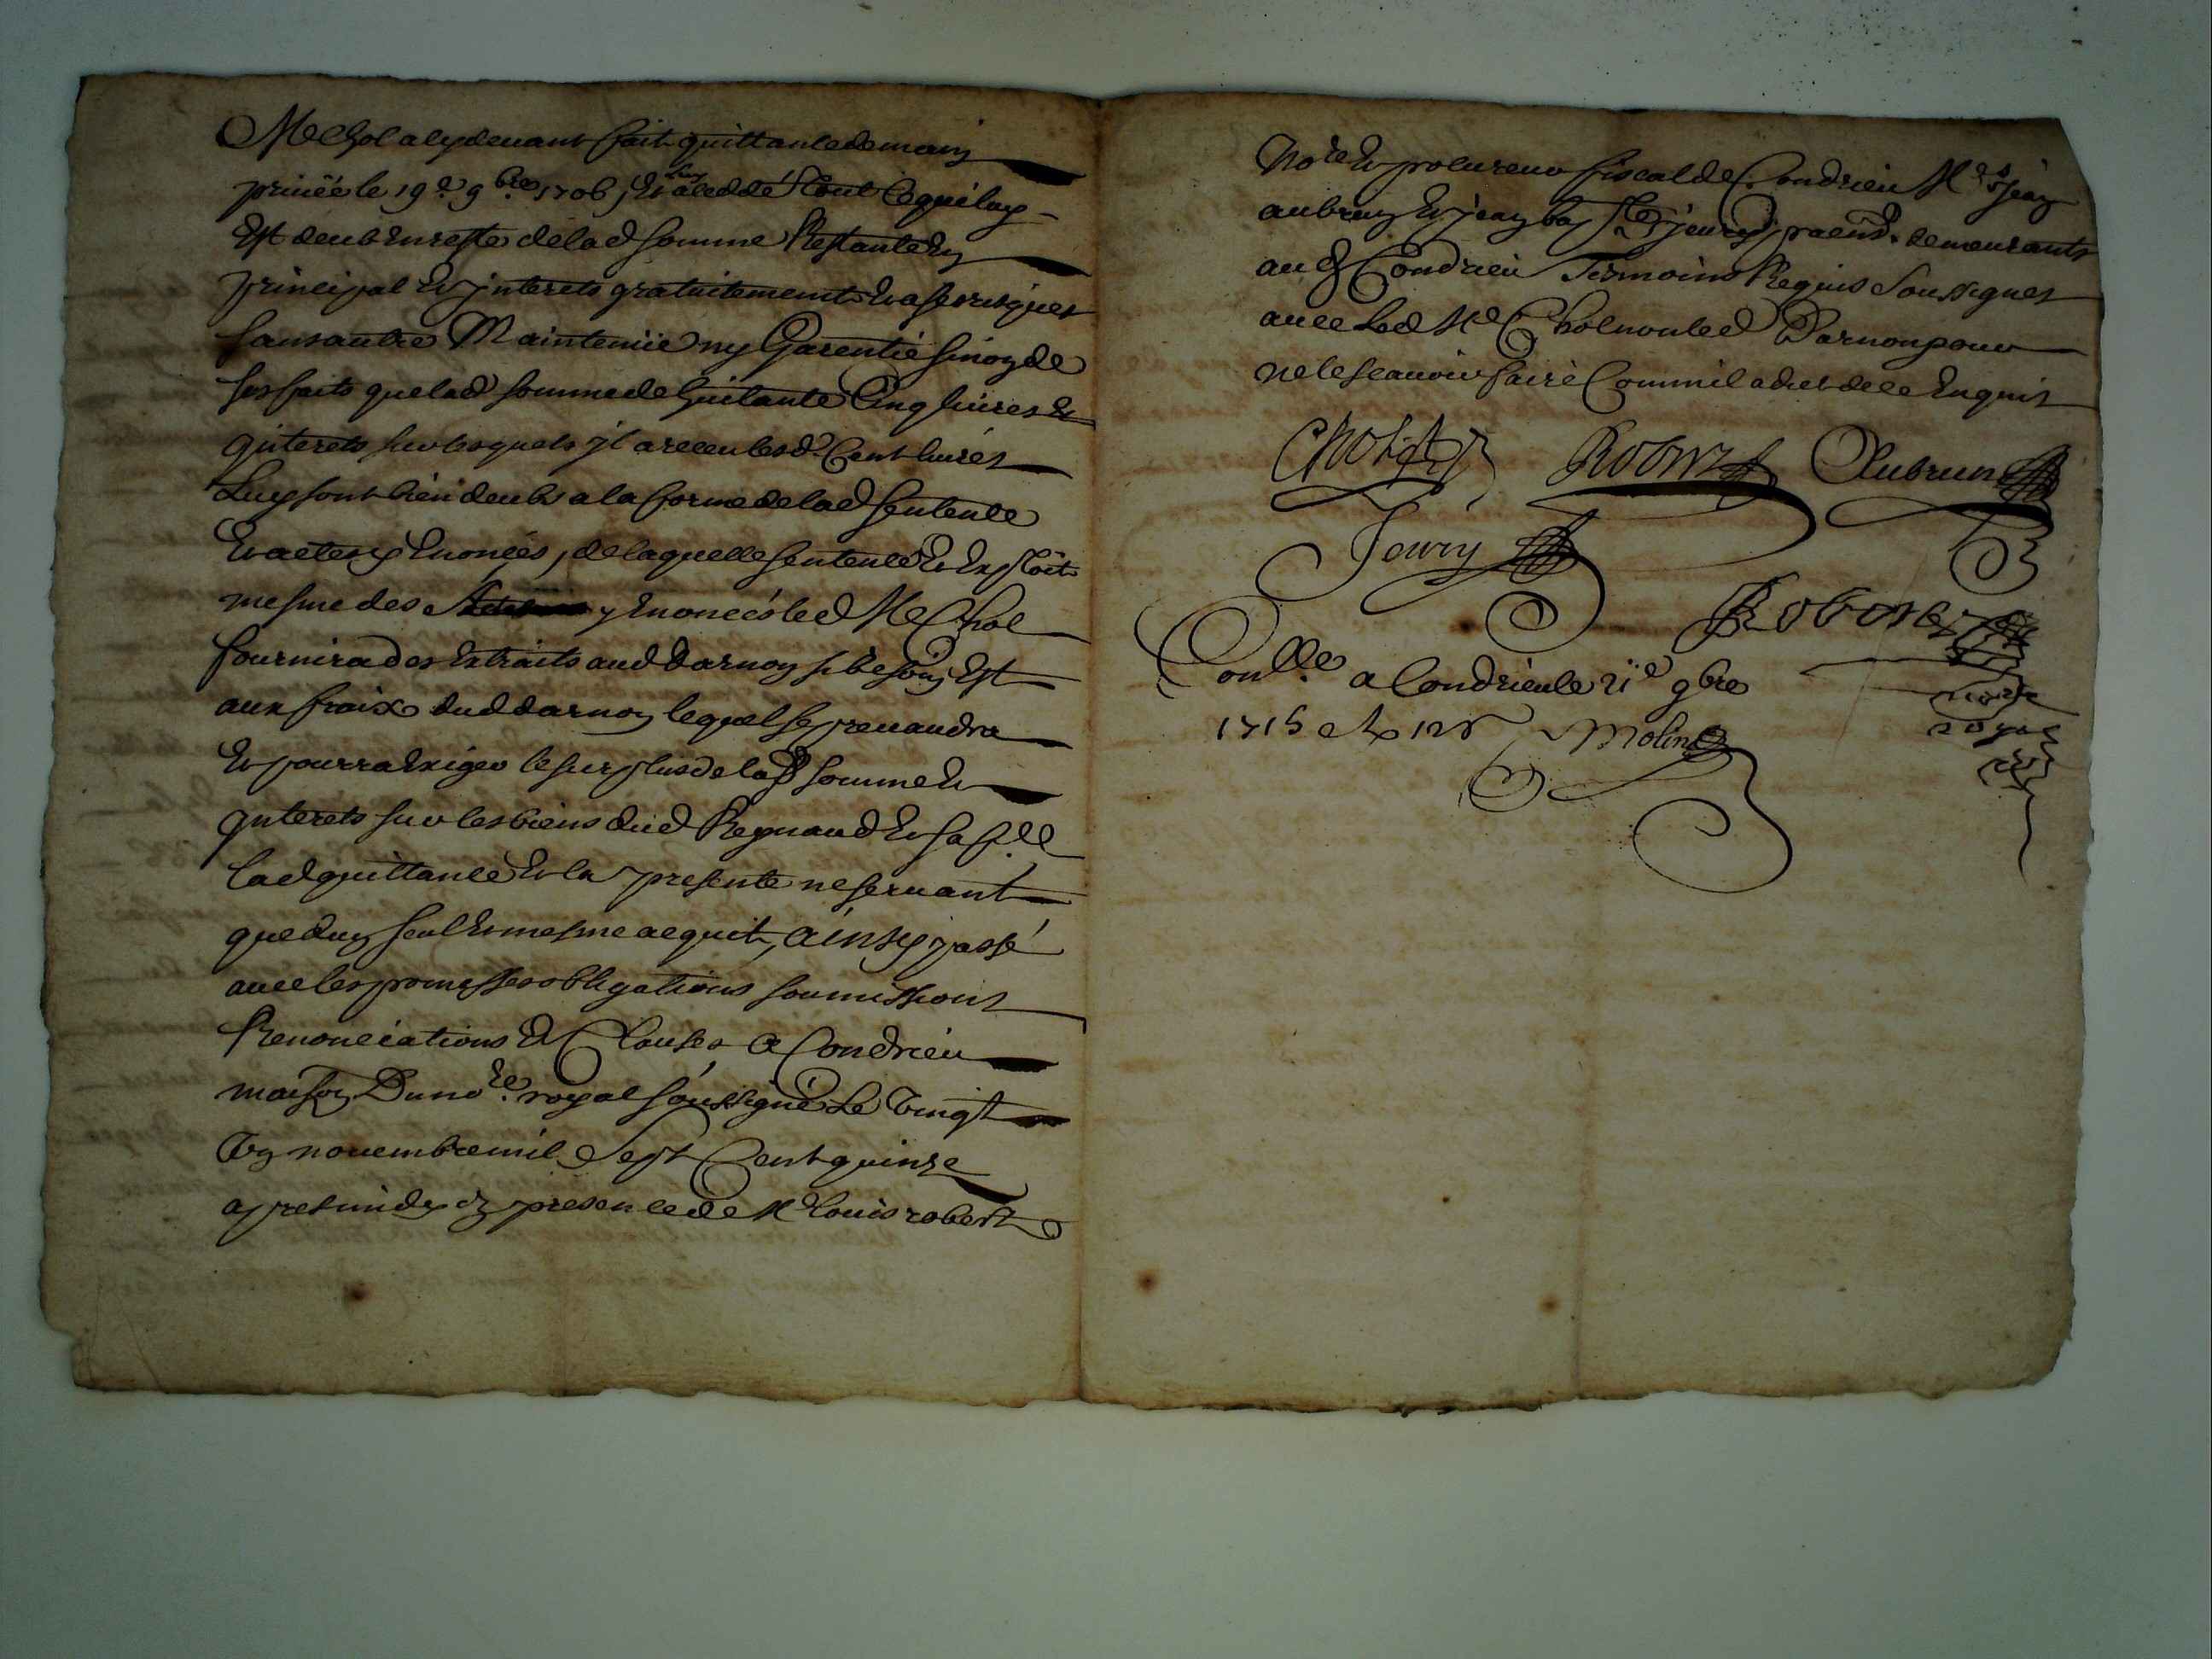 Me Chol a cy devant fait quittance de main
privée le 19e 9bre 1706, Et luy a ceddé tout ce qui luy
Est deub En reste de lad somme Restante En
principal Et jnterets gratuitement Et a ses risques
sans autre Maintenüe ny Garentie sinon de
ses faits que lad somme de huitante Cinq livres Et
jnterets sur lesquels jl a receu lesd. Cent livres
Luy sont bien deubs a la forme de lad sentence
Et actes y Enoncés, de laquelle sentence Et Exploit
mesme des y Enoncés led Me Chol
fournira des Extraits aud Darnon si besoin Est
aux fraix dud darnon lequel se prevaudra
Et pourra Exiger le surplus de lad somme Et
jnterets sur les biens dud Reynaud Et sa f.
lad quittance Et la presente ne servant
que d'un seul Et mesme acquit, ainsy passé
avec les promesses obligations soumissions
Renonciations Et Clauses A Condrieu
maison Du nore royal soussigné Le Vingt
Un novembre mil Sept Cent quinze
apres midy En presence de Me Louis robert
Nore Et procureur fiscal de Condrieu Mes Jean
aubrun Et jean bap.te jeury praend. demeurants
aud Condrieu Tesmoins Requis Soussignes
avec Led Me Chol non led Darnon pour
ne le scavoir faire Comm'il a dit de ce Enquis
Chol
Robert
Aubrun
Jeury
Robert
nore
royal
Conlle a Condrieu le 21e 9bre
1715 12s Molin